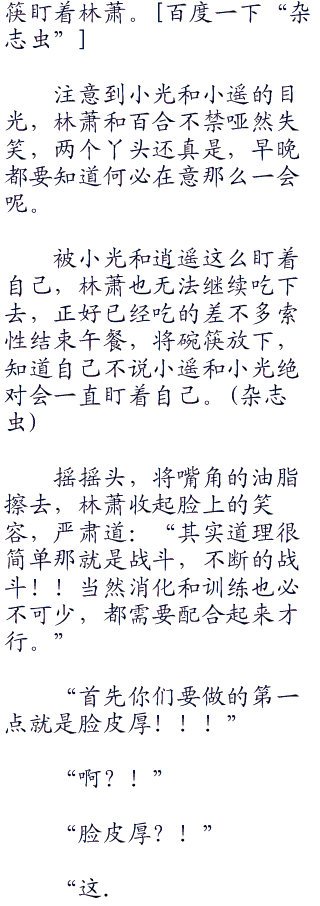 筷盯着林萧。[百度一下“杂
志虫”]
注意到小光和小遥的目
光，林萧和百合不禁哑然失
笑，两个丫头还真是，早晚
都要知道何必在意那么一会
呢。
被小光和逍遥这么盯着
自己，林萧也无法继续吃下
去，正好已经吃的差不多索
性结束午餐，将碗筷放下，
知道自己不说小遥和小光绝
对会一直盯着自己。(杂志
虫)
摇摇头，将嘴角的油脂
擦去，林萧收起脸上的笑
容，严肃道：“其实道理很
简单那就是战斗，不断的战
斗！！当然消化和训练也必
不可少，都需要配合起来才
行。”
“首先你们要做的第一
点就是脸皮厚！！！”
“啊？！”
“脸皮厚？！”
“这.